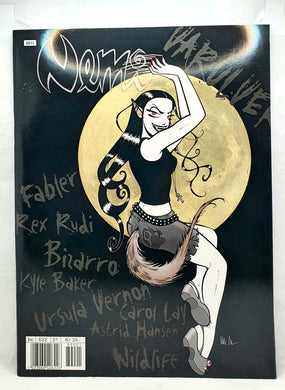 Nemi
VARULVER
Fabler
Rex Rudi
Bizarro
Kyle Baker
Ursula Vernon
Carol Lay
Astrid Hansen
Wildlife